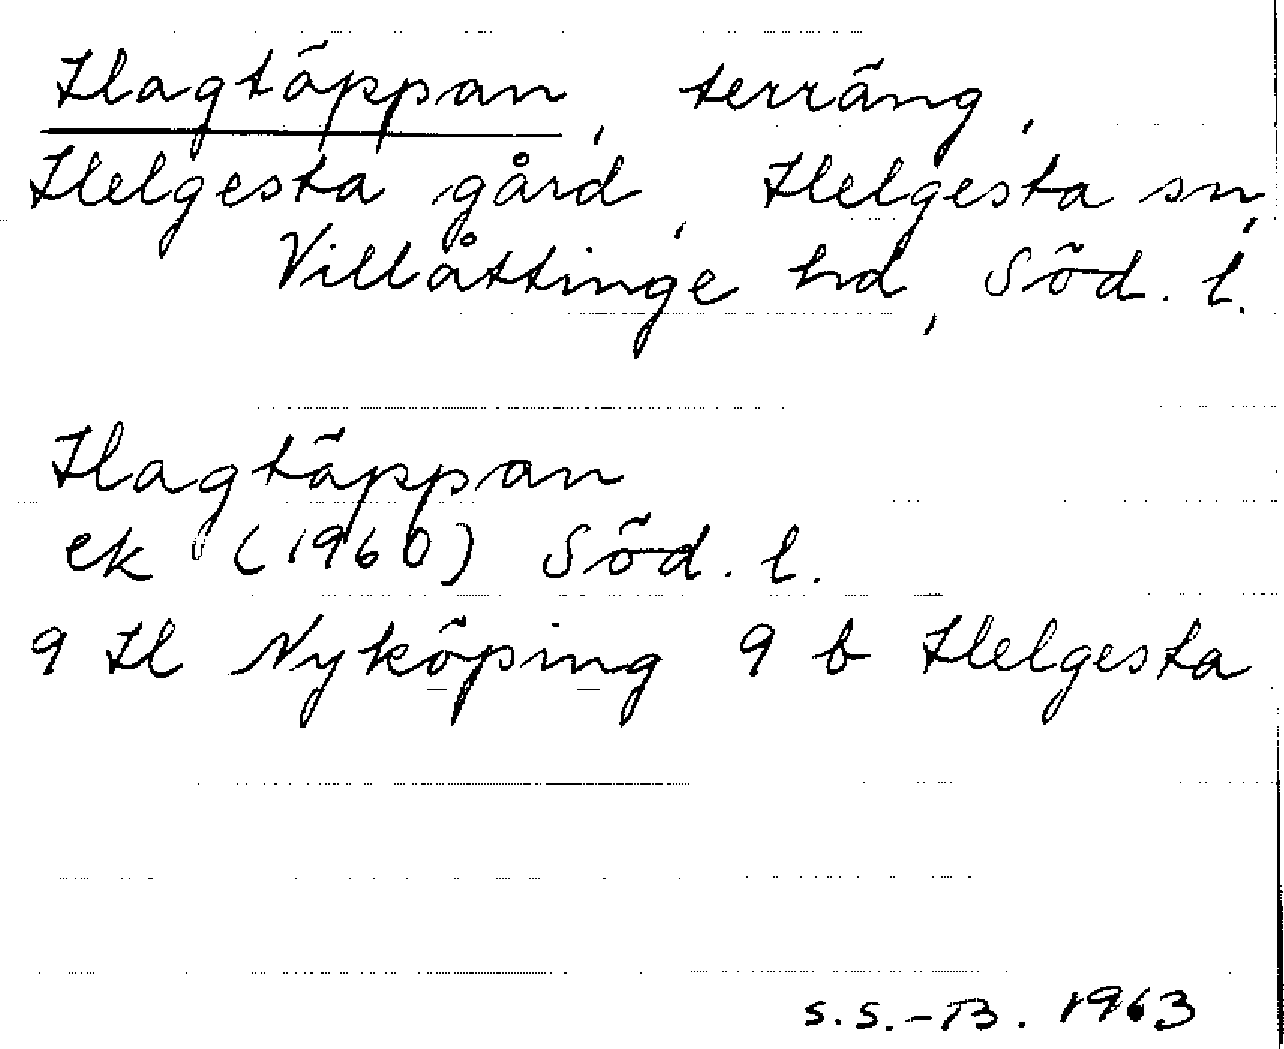 Hagtäppan, terräng,
Helgesta gård, Helgesta sn,
Villåttinge hd, Söd. l.
Hagtäppan
ek (1960) Söd. l.
9 H Nyköping 9 b Helgesta
S.S.-B. 1963